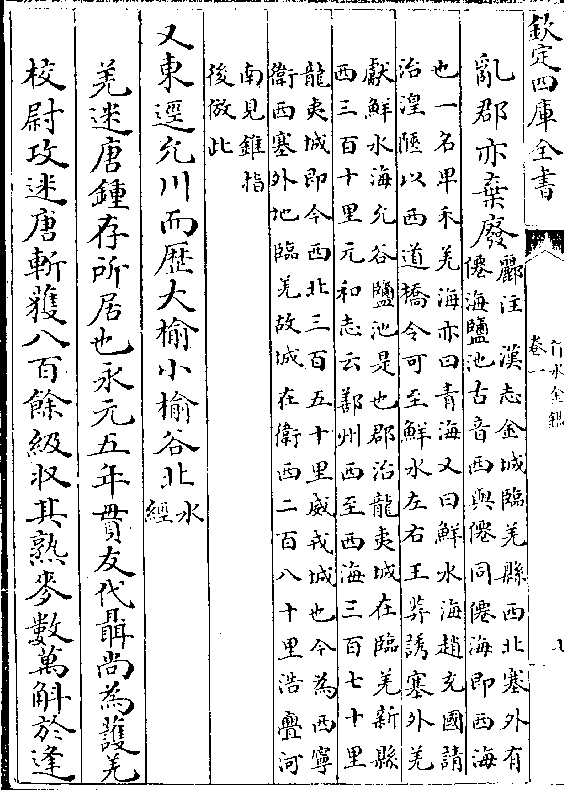 欽定四庫全書
行水金鑑
卷一
亂郡亦棄廢
酈注 漢志金城臨羌縣西北塞外有
僊海鹽池古音西與僊同僊海即西海
也一名卑禾羌海亦曰青海又曰鮮水海趙充國請
治湟陿以西道橋令可至鮮水左右王莽誘塞外羌
獻鮮水海允谷鹽池是也郡治龍夷城在臨羌新縣
西三百十里元和志云鄯州西至西海三百七十里
龍夷城即今西北三百五十里威戎城也今為西寧
衛西塞外地臨羌故城在衛西二百八十里浩亹河
南見錐指
後倣此
又東逕允川而歷大榆小榆谷北
水
經
羌迷唐鍾存所居也永元五年貫友代聶尚為護羌
校尉攻迷唐斬獲八百餘級收其熟麥數萬斛於逢